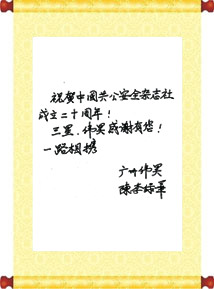 祝贺中国共公安全杂志社
成立二十周年！
三星、伟昊感谢有您！
一路相携
广州伟昊